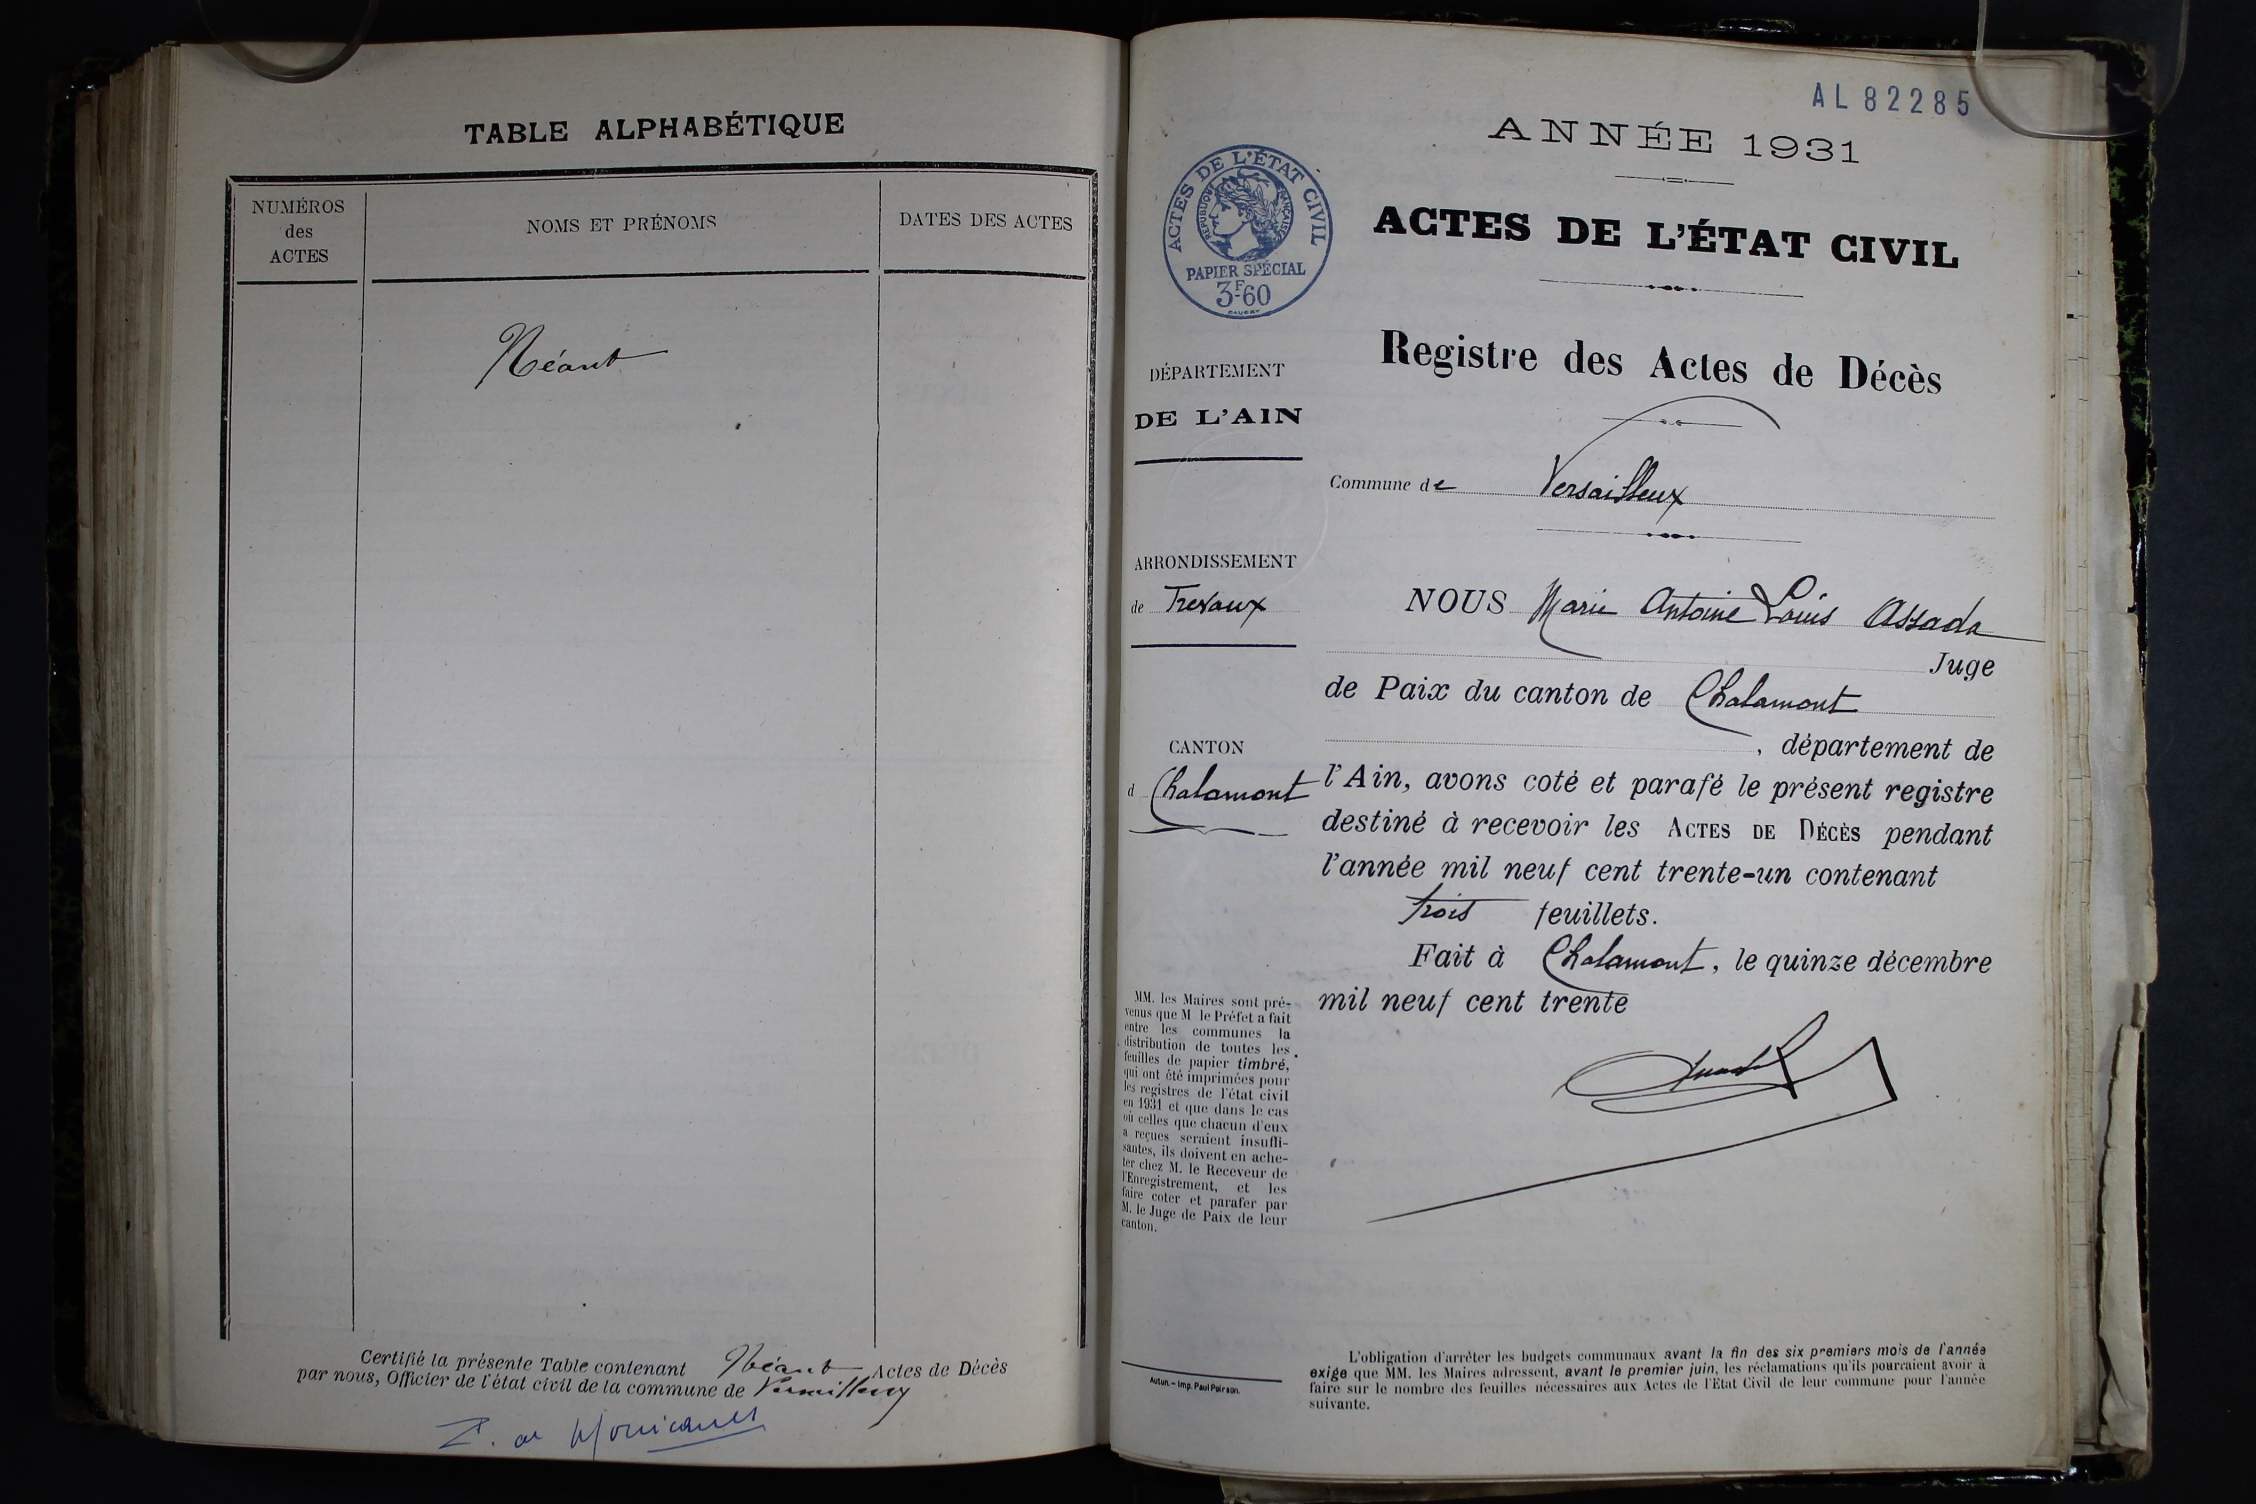 TABLE ALPHABÉTIQUE
NUMÉROS
des
ACTES
NOMS ET PRÉNOMS
DATES DES ACTES
Néant
Certifié la présente Table contenant Néant Actes de Décès
par nous, Officier de l'état civil de la commune de Versailleux
AL 82285
ANNÉE 1931
ACTES DE L'ÉTAT CIVIL
RÉPUBLIQUE FRANÇAISE
PAPIER SPÉCIAL
3F60
ACTES DE L'ÉTAT CIVIL
Registre des Actes de Décès
DÉPARTEMENT
DE L'AIN
Commune de Versailleux
ARRONDISSEMENT
de Trévoux
CANTON
d Chalamont
NOUS Marie Antoine Louis Assada
Juge
de Paix du canton de Chalamont
, département de
l'Ain, avons coté et parafé le présent registre
destiné à recevoir les ACTES DE DÉCÈS pendant
l'année mil neuf cent trente-un contenant
trois feuillets.
Fait à Chalamont, le quinze décembre
mil neuf cent trente
MM. les Maires sont pré-
venus que M le Préfet a fait
entre les communes la
distribution de toutes les
feuilles de papier timbré,
qui ont été imprimées pour
les registres de l'état civil
en 1931 et que dans le cas
où celles que chacun d'eux
a reçues seraient insuffi-
santes, ils doivent en ache-
ter chez M. le Receveur de
l'Enregistrement, et les
faire coter et parafer par
M. le Juge de Paix de leur
canton.
Autun. — Imp. Paul Poirson.
L'obligation d'arrêter les budgets communaux avant la fin des six premiers mois de l'année
exige que MM. les Maires adressent, avant le premier juin, les réclamations qu'ils pourraient avoir à
faire sur le nombre des feuilles nécessaires aux Actes de l'Etat Civil de leur commune pour l'année
suivante.